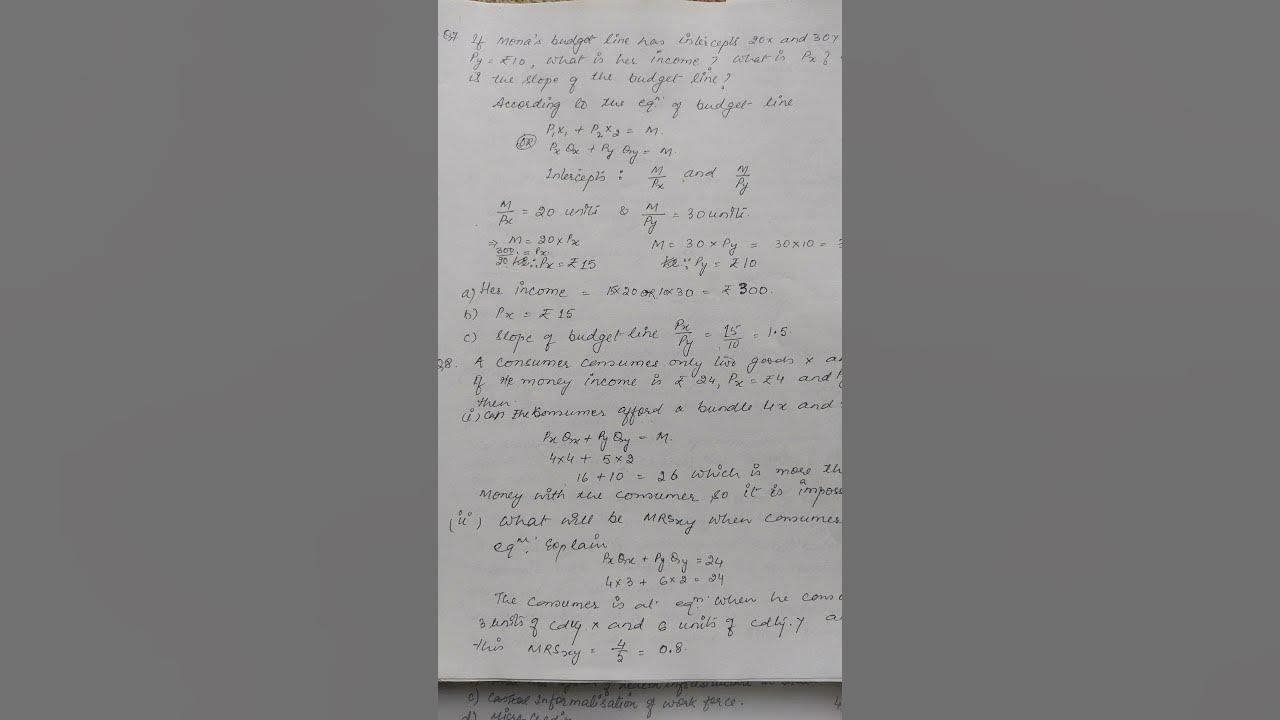 Q7. If Mona's budget line has intercepts 20x and 30y
Py = ₹10, what is her income? What is Px?
is the slope of the budget line?
According to the eqn of budget line
P1x1 + P2x2 = M.
OR
Px Qx + Py Qy = M.
Intercepts: M/Px and M/Py
M/Px = 20 units & M/Py = 30 units.
⇒ M = 20 × Px M = 30 × Py = 30×10 = 3
300/20 = Px
∴ Px = ₹15 ∴ Py = ₹10
a) Her income = 15×20 OR 10×30 = ₹300.
b) Px = ₹15
c) Slope of budget line Px/Py = 15/10 = 1.5.
Q8. A consumer consumes only two goods x
If He money income is ₹24, Px = ₹4 and
then.
(i) Can the consumer afford a bundle 4x and
Px Qx + Py Qy = M.
4×4 + 5×2
16 + 10 = 26 which is more
Money with the consumer so it is a
(ii) What will be MRSxy when consumer
eqm. Explain
Px Qx + Py Qy = 24
4×3 + 6×2 = 24
The consumer is at eqm when he
3 units of cdty x and 6 units of cdty. y
this MRSxy = 4/5 = 0.8.
c) Casual Informalisation of work force.
d)